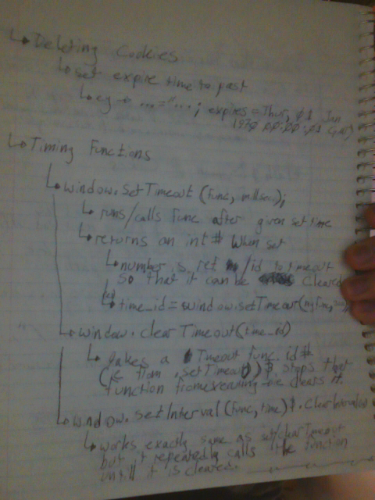 ↳ Deleting Cookies
↳ set expire time to past
↳ eg → ...=...; expires=Thu, 01 Jan
1970 00:00:01 GMT;
↳ Timing Functions
↳ window.setTimeout(func, millsec);
↳ runs/calls func after given set time
↳ returns an int # when set
↳ number is ret /id is timeout
so that it can be cleared
↳ time_id = window.setTimeout(
↳ window.clearTimeout(time_id)
↳ takes a Timeout func. id #
(from .setTimeout) & stops that
function from
↳ window.setInterval(func, time) & .clearInterval
↳ works exactly same as set/clearTimeout
but it repeatedly calls the function
until it is cleared.